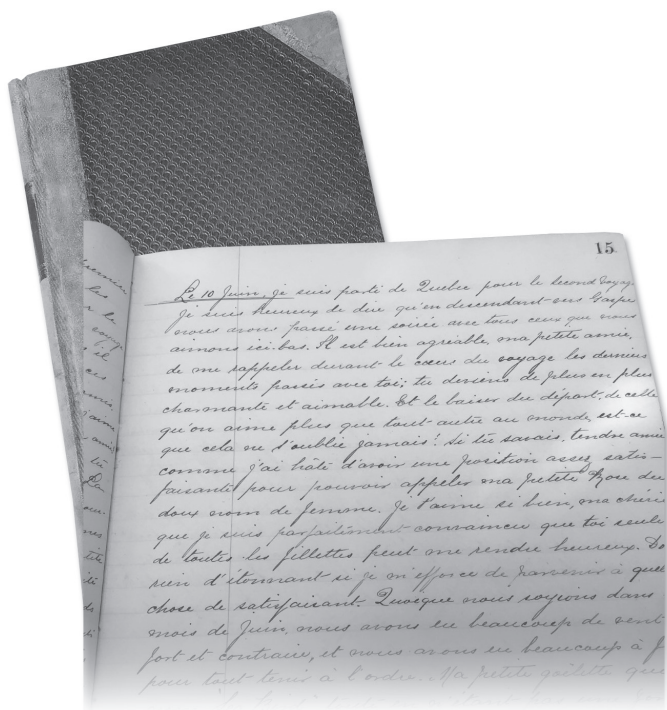 15.
Le 10 Juin, je suis parti de Quebec pour le second voyag
Je suis heureux de dire qu'en descendant vers Gaspé
nous avons passé une soirée avec tous ceux que nous
aimons ici-bas. Il est bien agréable, ma petite amie,
de me rappeler durant le cours du voyage les derniers
moments passés avec toi; tu deviens de plus en plus
charmante et aimable. Et le baiser du départ, de celle
qu'on aime plus que tout autre au monde est-ce
que cela ne s'oublie jamais! Si tu savais, tendre amie
comme j'ai hâte d'avoir une position assez satis-
faisante pour pouvoir appeler ma petite Rose du
doux nom de femme. Je t'aime si bien, ma chérie
que je suis parfaitement convaincu que toi seule
de toutes les fillettes peut me rendre heureux. Do
rien d'étonnant si je m'efforce de parvenir à quel
chose de satisfaisant. Quoique nous soyions dans
mois de Juin, nous avons eu beaucoup de vent
fort et contraire, et nous avons eu beaucoup à f
pour tout tenir à l'ordre. Ma petite goëlette que